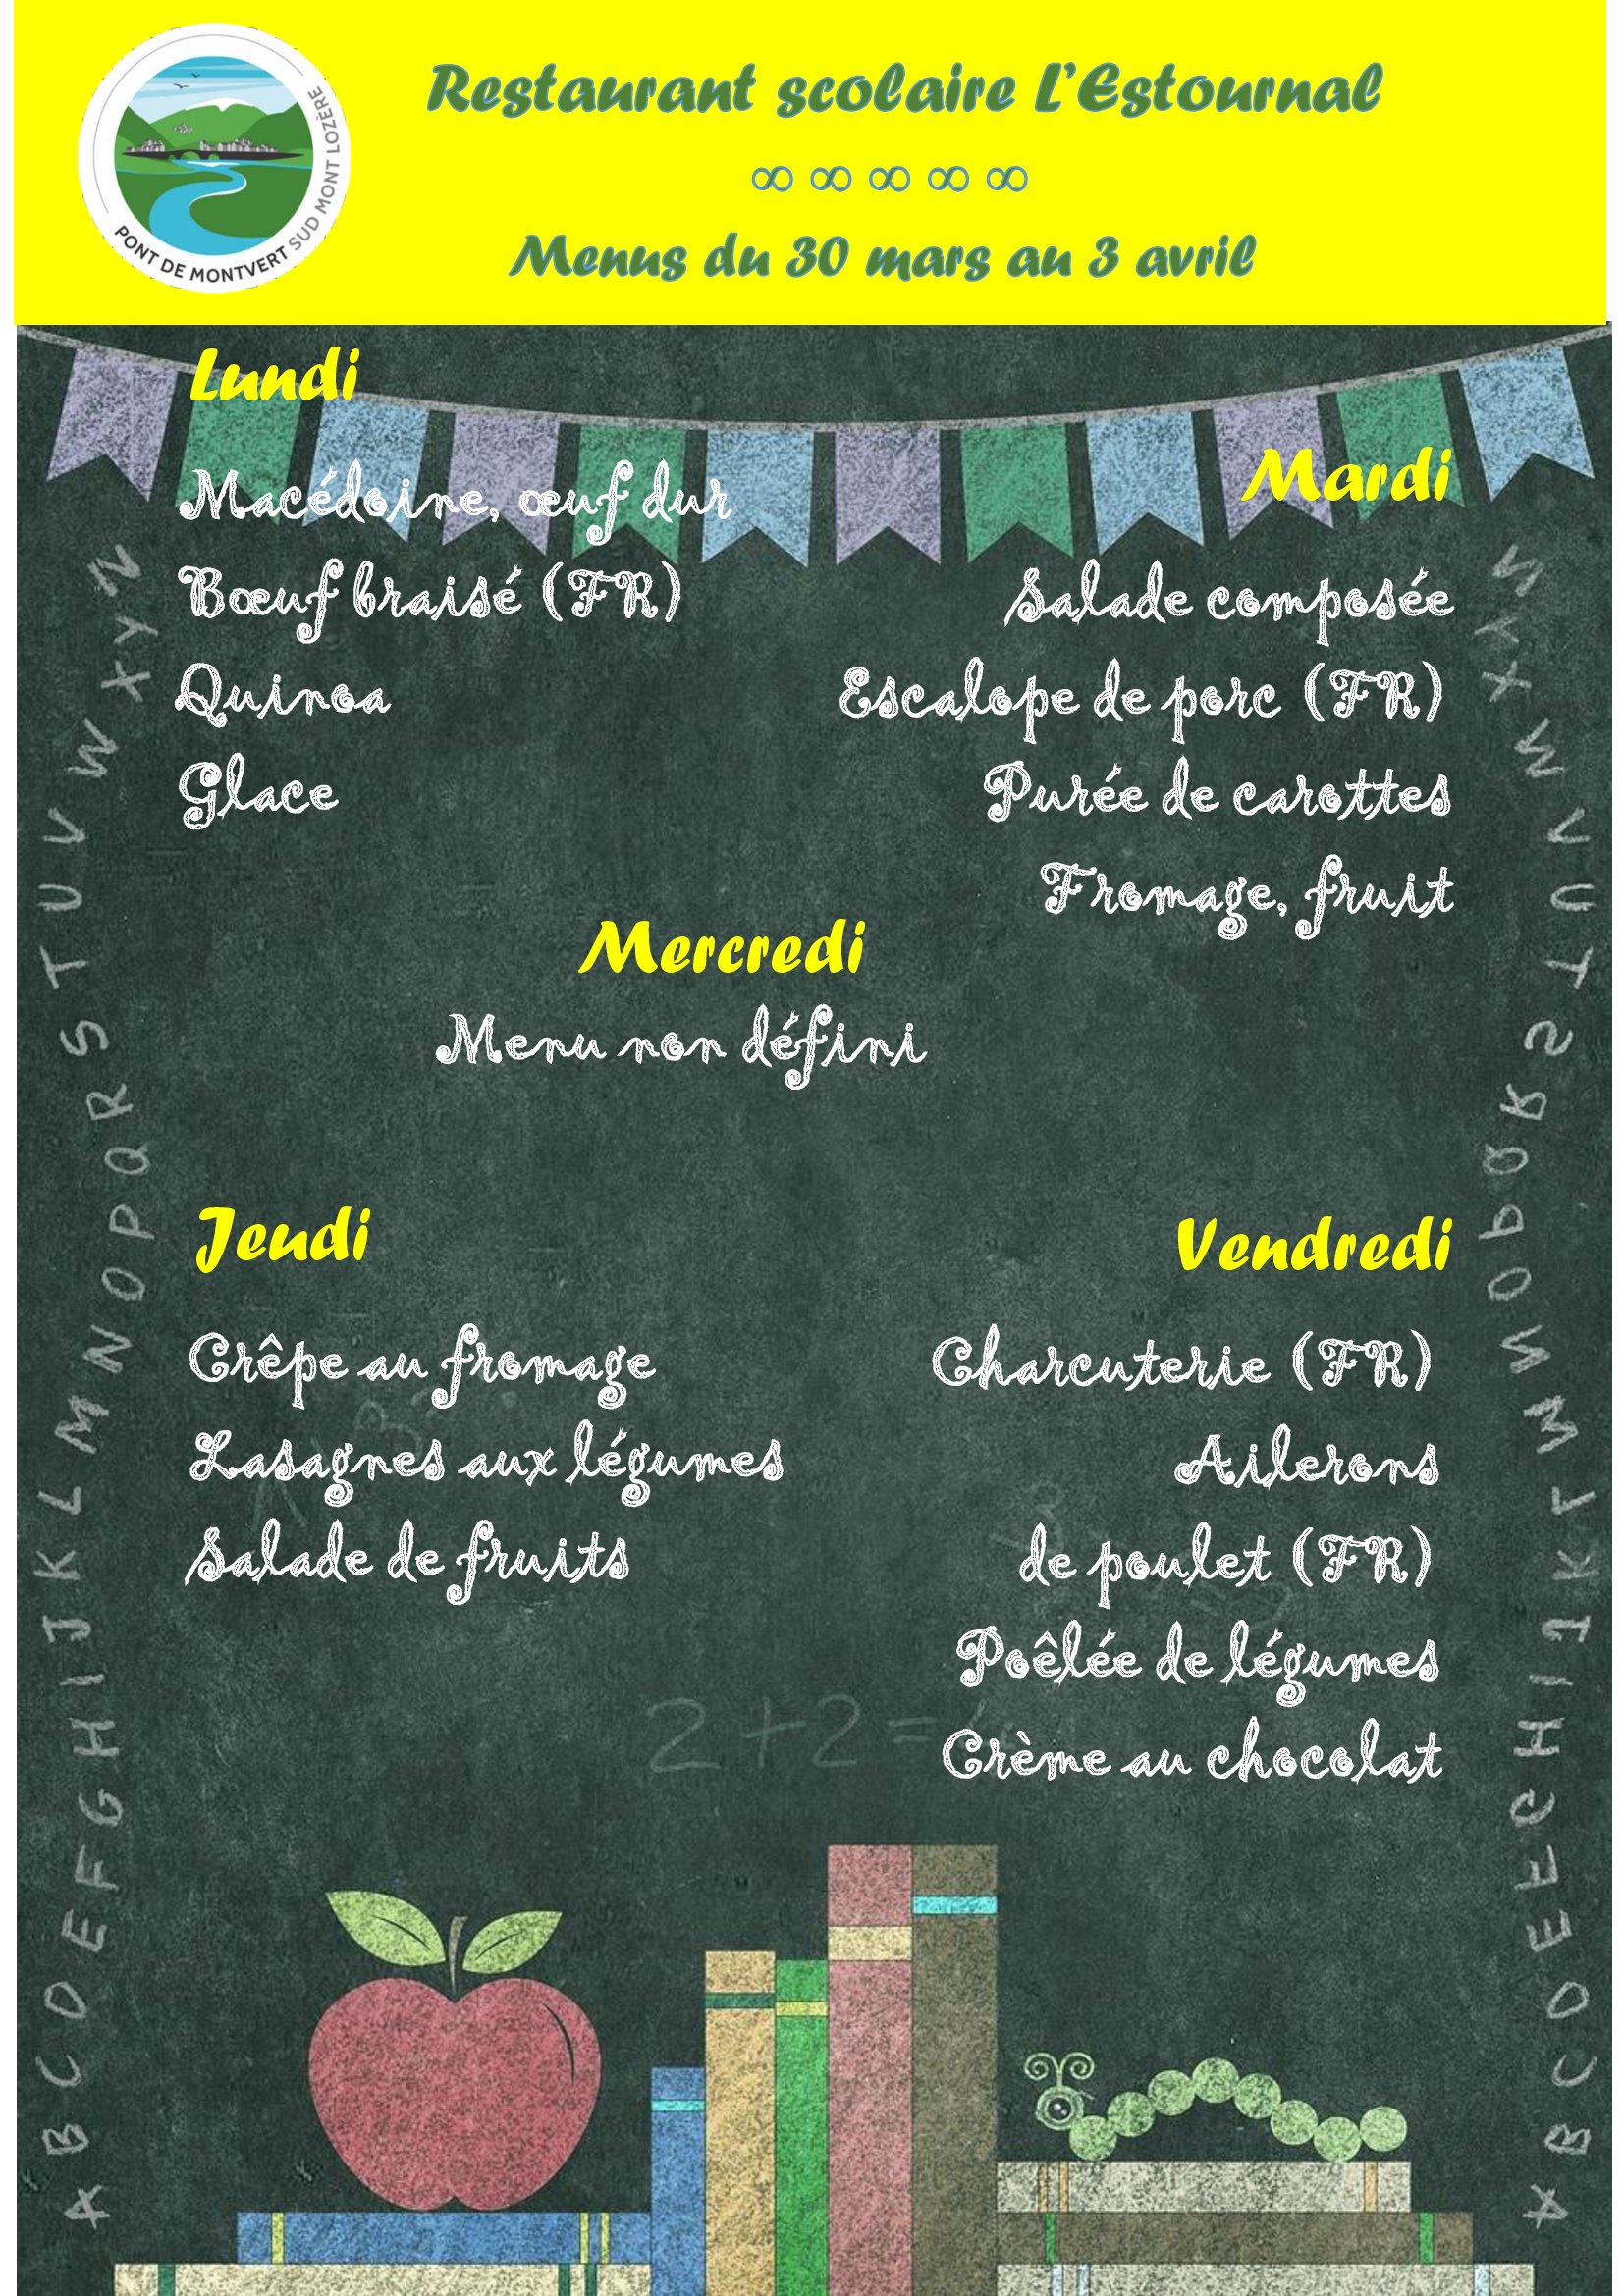 Restaurant scolaire L’Estournal
∞ ∞ ∞ ∞ ∞
Menus du 30 mars au 3 avril
PONT DE MONTVERT SUD MONT LOZÈRE
Lundi
Macédoine, œuf dur
Bœuf braisé (FR)
Quinoa
Glace
Mardi
Salade composée
Escalope de porc (FR)
Purée de carottes
Fromage, fruit
Mercredi
Menu non défini
Jeudi
Crêpe au fromage
Lasagnes aux légumes
Salade de fruits
Vendredi
Charcuterie (FR)
Ailerons
de poulet (FR)
Poêlée de légumes
Crème au chocolat
2+2=
A B C D E F G H I J K L M N O P Q R S T U V W X Y Z
A B C D E F G H I J K L M N O P Q R S T U V W X Y Z